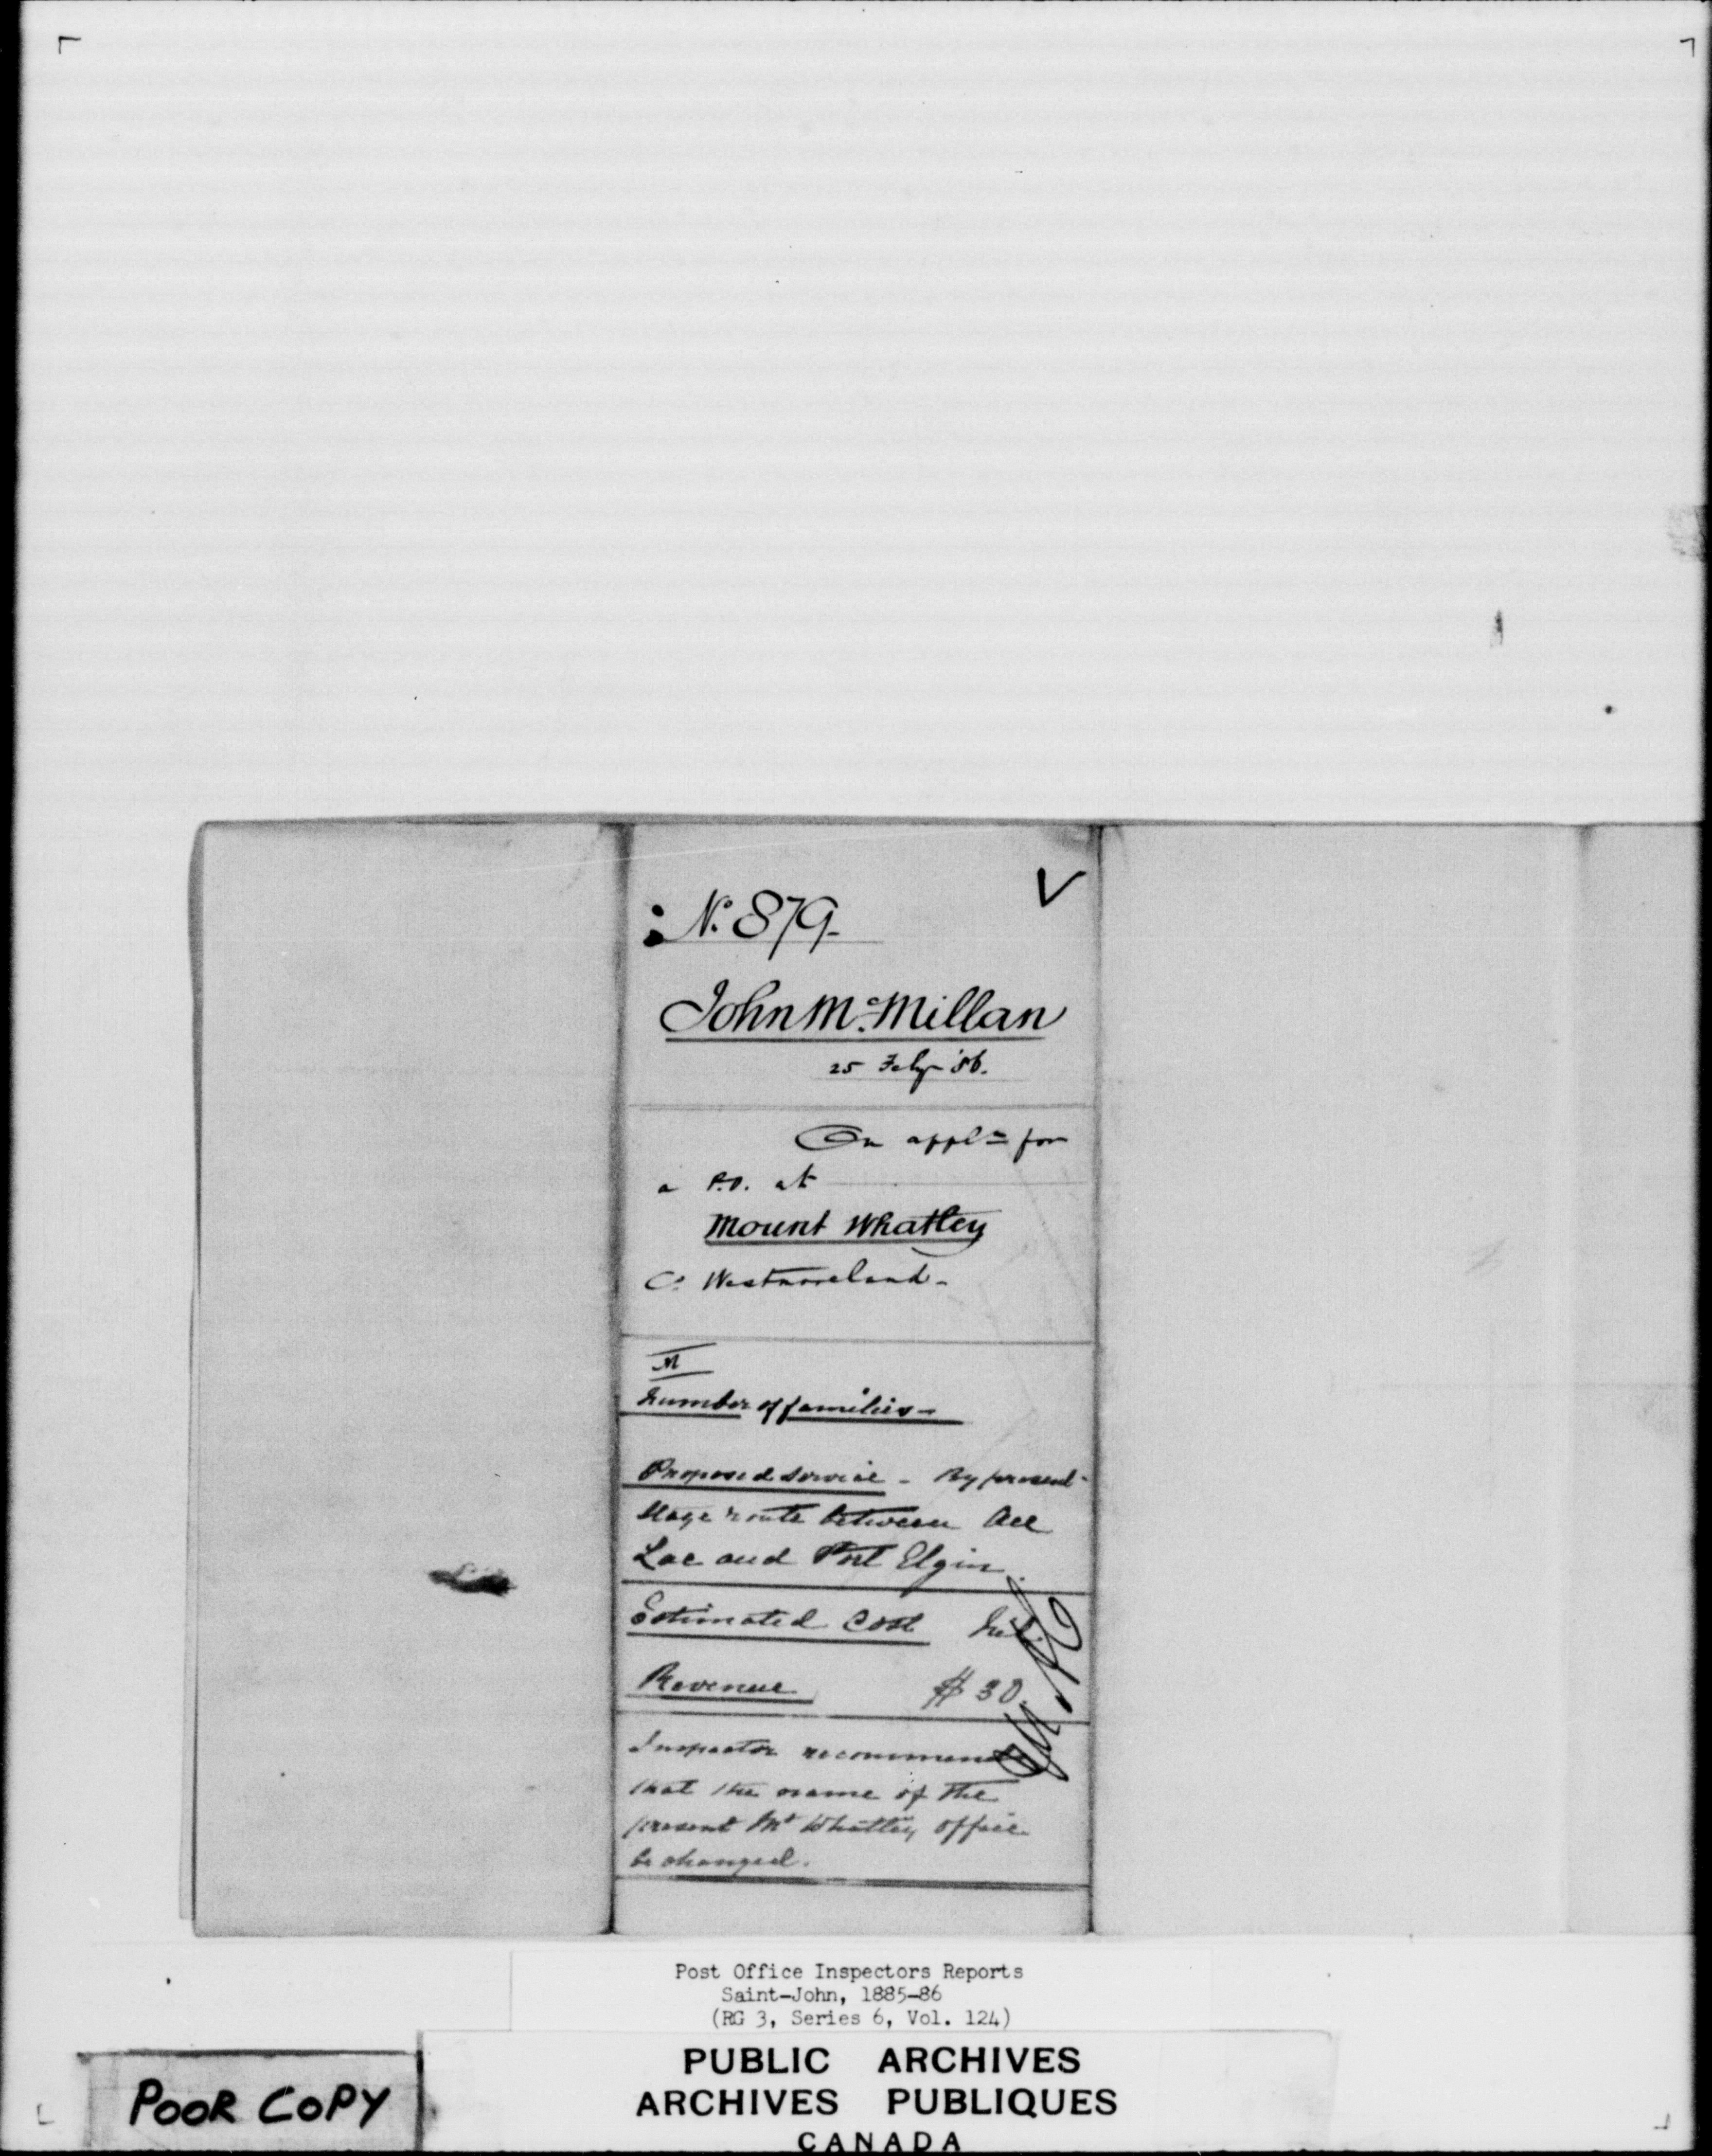 V
No. 879.
John McMillan
25 Feby '86.
On appln for
a P.O. at
Mount Whatley
Co. Westmoreland.
M
Number of families -
Proposed service - By present
stage route between Au
Lac and Port Elgin.
Estimated Cost
Revenue $30
Inspector recommends
that the name of the
present Mt Whatley office
be changed.
Post Office Inspectors Reports
Saint-John, 1885-86
(RG 3, Series 6, Vol. 124)
PUBLIC ARCHIVES
ARCHIVES PUBLIQUES
CANADA
POOR COPY